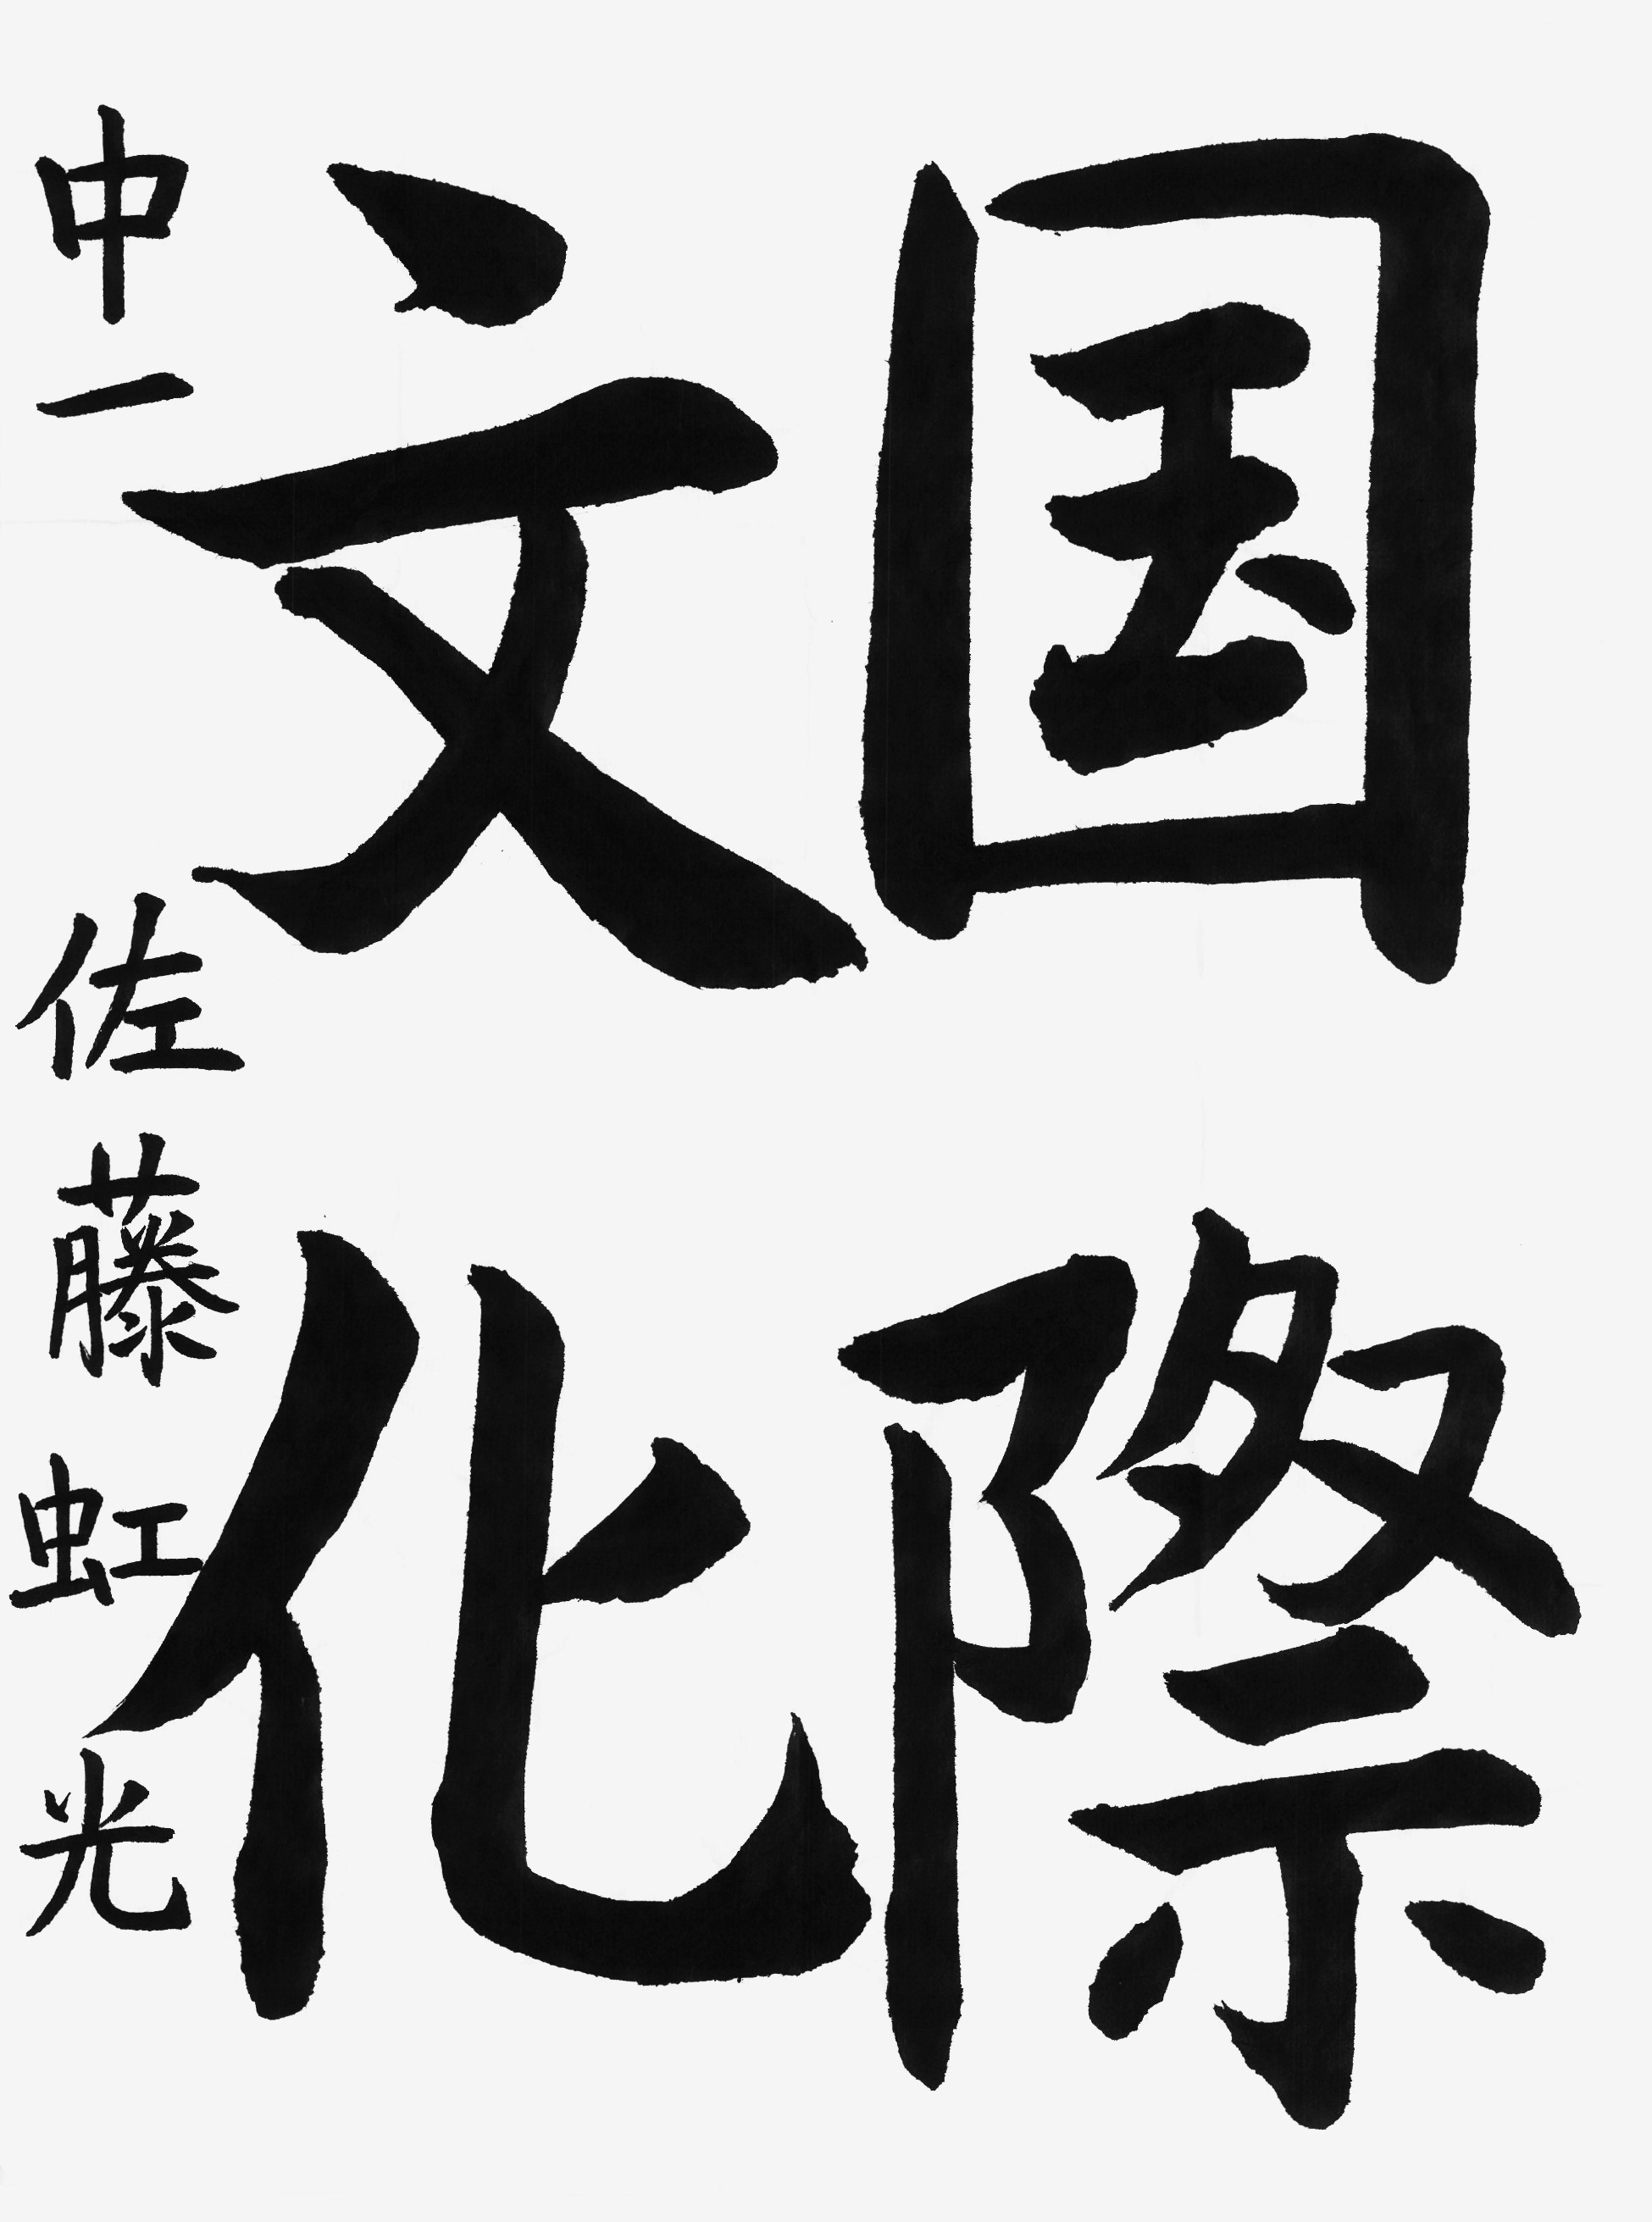 国際
文化
中一 佐藤虹光